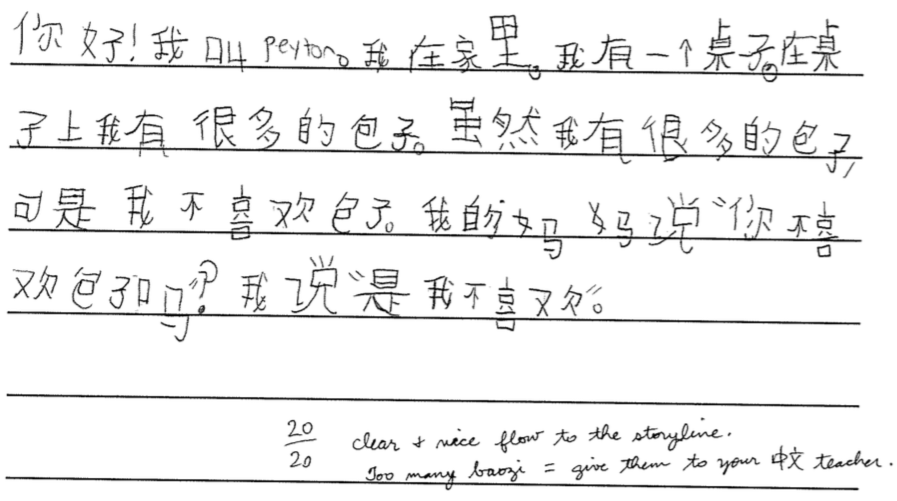 你好!我叫Peyton。我在家里。我有一个桌子。在桌
子上我有很多的包子。虽然我有很多的包子,
可是我不喜欢包子。我的妈妈说“你不喜
欢包子吗”?我说“是我不喜欢”。
20/20 clear & nice flow to the storyline.
Too many baozi = give them to your 中文 teacher.